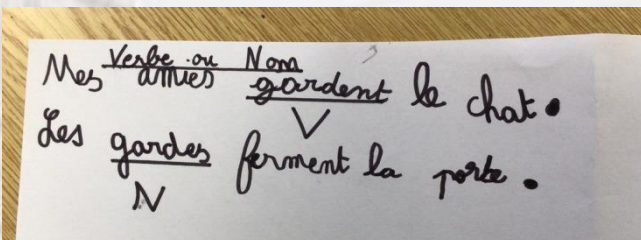 Verbe ou Nom
Mes amies gardent le chat.
V
Les gardes ferment la porte.
N